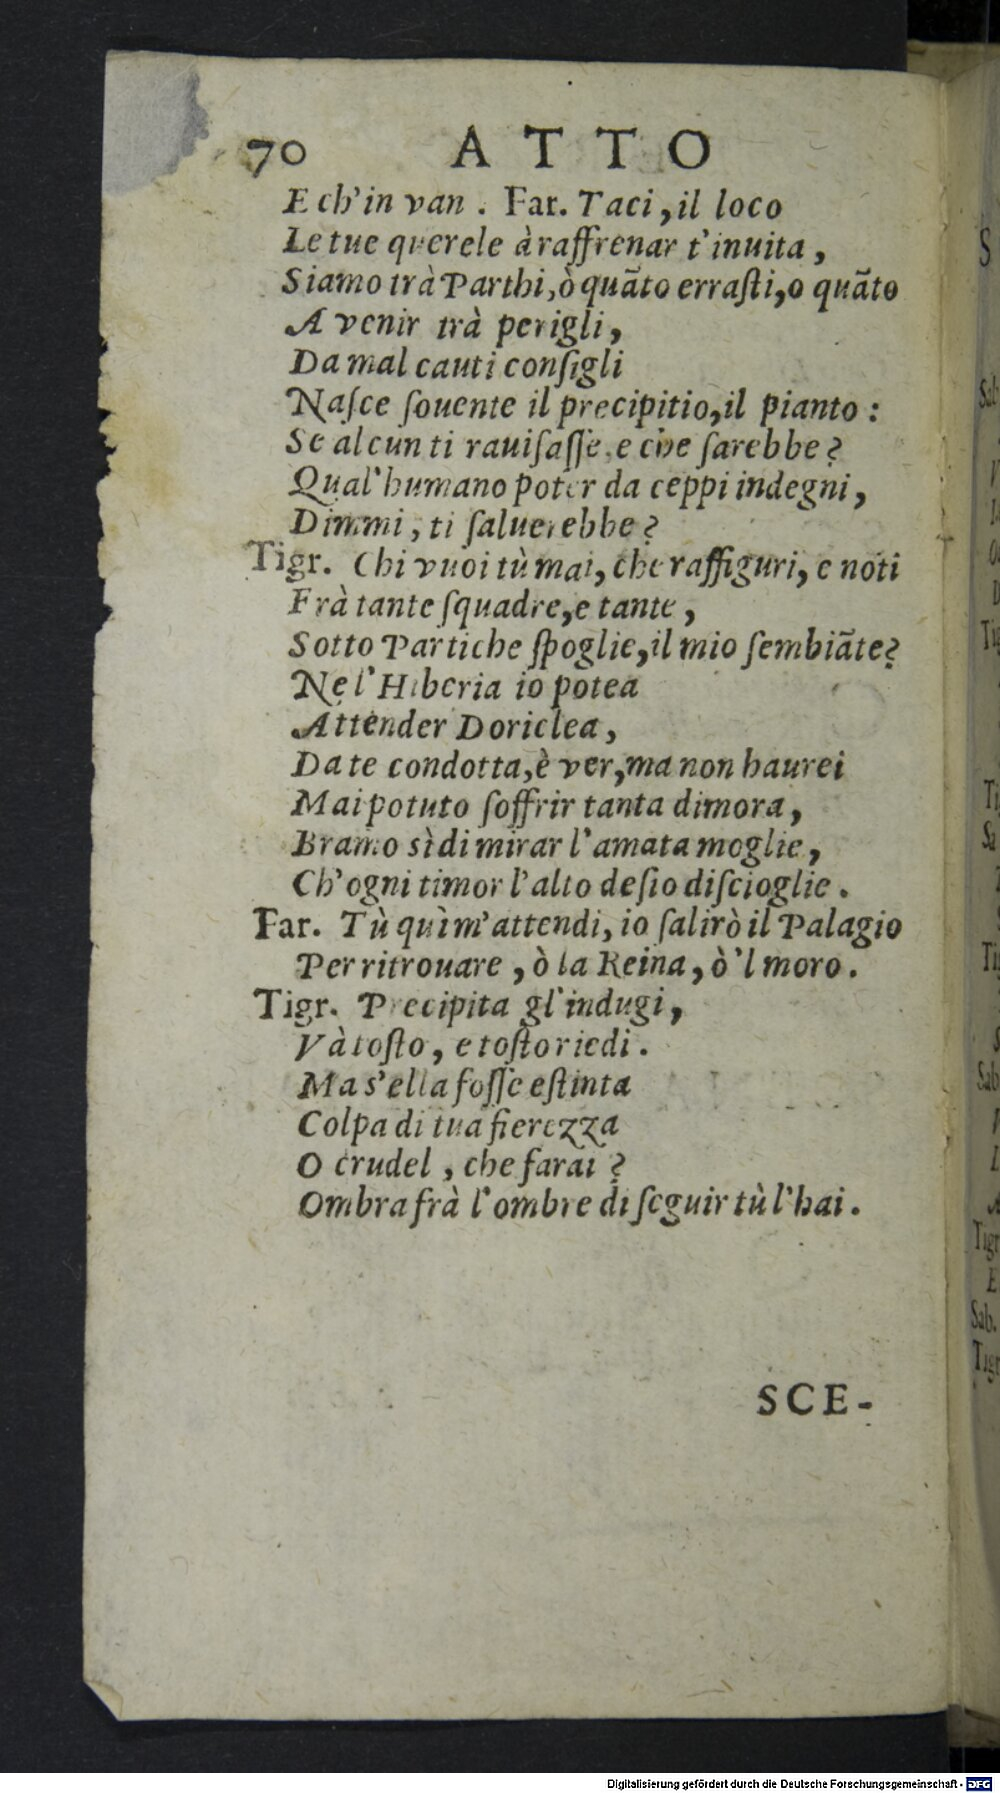 70 ATTO
E ch'in van. Far. Taci, il loco
Le tue querele à raffrenar t'inuita,
Siamo trà Parthi, ò quãto errasti, o quãto
A venir trà perigli,
Da mal cauti consigli
Nasce souente il precipitio, il pianto:
Se alcun ti rauisasse, e che sarebbe?
Qual'humano poter da ceppi indegni,
Dimmi, ti saluerebbe?
Tigr. Chi vuoi tù mai, che raffiguri, e noti
Frà tante squadre, e tante,
Sotto Partiche spoglie, il mio sembiãte?
Ne l'Hiberia io potea
Attender Doriclea,
Da te condotta, è ver, ma non haurei
Mai potuto soffrir tanta dimora,
Bramo sì di mirar l'amata moglie,
Ch'ogni timor l'alto desio discioglie.
Far. Tù quì m'attendi, io salirò il Palagio
Per ritrouare, ò la Reina, ò 'l moro.
Tigr. Precipita gl'indugi,
Và tosto, e tosto riedi.
Ma s'ella fosse estinta
Colpa di tua fierezza
O crudel, che farai?
Ombra frà l'ombre di seguir tù l'hai.
SCE-
S
Sab
Tig
Ti
Sa
Ti
Sab
Tigr
E
Sab.
Tigr
Digitalisierung gefördert durch die Deutsche Forschungsgemeinschaft - DFG